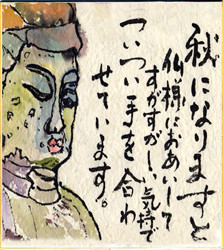 秋になりますと
仏様におあいして
すがすがしい気持で
ついつい手を合わ
せています。